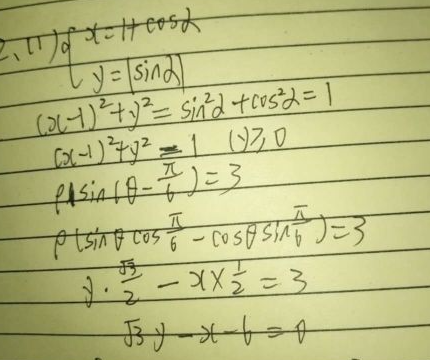 2, (1) { x = 1+ cosα
y = |sinα|
(x-1)²+y² = sin²α+cos²α = 1
(x-1)²+y² = 1 (y≥0
ρ sin(θ - π/6) = 3
ρ(sinθ cos π/6 - cosθ sin π/6) = 3
y · √3/2 - x × 1/2 = 3
√3 y - x - 6 = 0